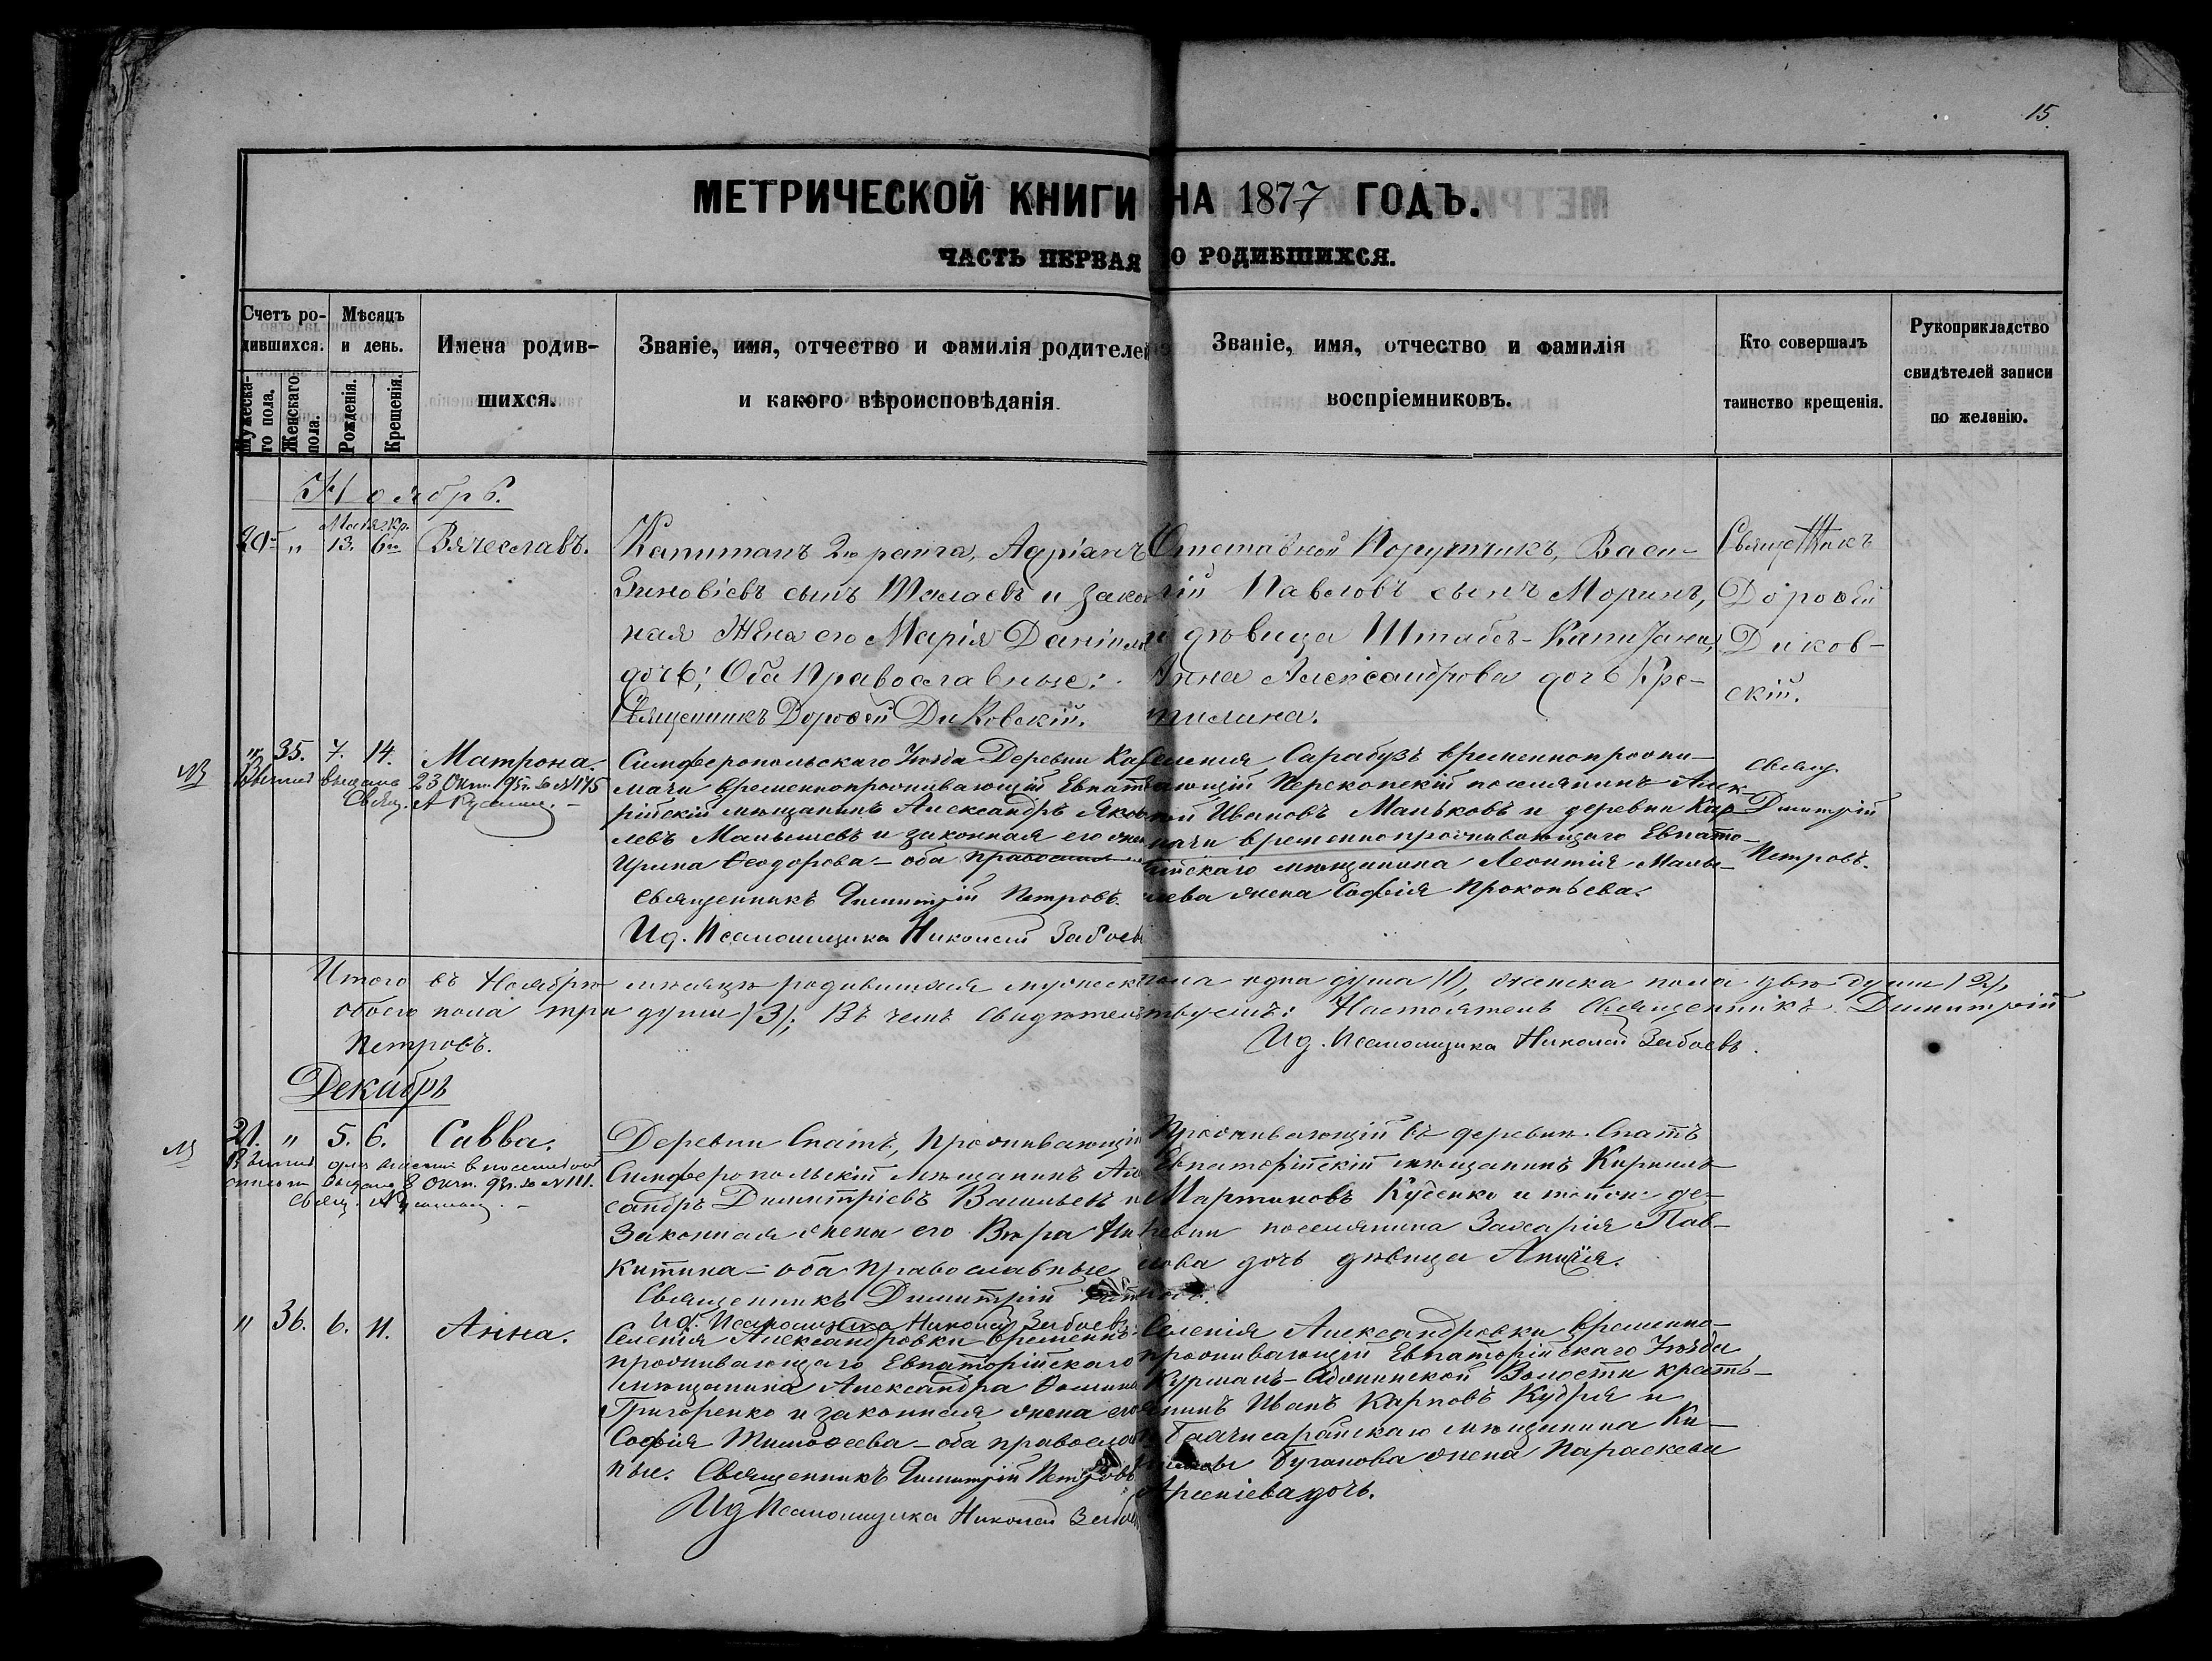 15.
МЕТРИЧЕСКОЙ КНИГИ НА 1877 ГОДЪ.
ЧАСТЬ ПЕРВАЯ О РОДИВШИХСЯ.
Счетъ ро-
дившихся.
Мужеска-
го пола.
Женскаго
пола.
Мѣсяцъ
и день.
Рожденія.
Крещенія.
Имена родив-
шихся.
Званіе, имя, отчество и фамилія родителей
и какого вѣроисповѣданія
Званіе, имя, отчество и фамилія
воспріемниковъ.
Кто совершалъ
таинство крещенія.
Рукоприкладство
свидѣтелей записи
по желанію.
Ноябрь.
20 " 13. 6 Вячеславъ.
Капитанъ 2го ранга, Адріанъ
Зиновіевъ сынъ и закон
ная жена его Марія Даніилова
дочь; Оба православные:
Священникъ Дорофей Диковскій.
Отставной Порутчикъ, Васи-
лій Павловъ сынъ Моринъ,
и дѣвица Штабсъ-Капитана,
Анна Александрова дочь Кре-
Священникъ
Дорофей
Диков-
скій.
" 35. 7. 14. Матрона.
23 Окт. 95 г. за №175
Свящ.
Симферопольскаго Уѣзда Деревни Кар
мачи временнопроживающій Евпато
рійскій мѣщанинъ Александръ Яков
левъ Малышевъ и законная его жена
Ирина Ѳеодорова - оба православные
Священникъ Димитрій Петровъ.
Ид. Псаломщика Николай Забоевъ
Селенія Сарабузъ временнопрожи-
вающій Перекопскій поселянинъ Алек-
сѣй Ивановъ Маньковъ и деревни Кар
мачи временно проживающаго Евпато-
рійскаго мѣщанина Леонтія Малы-
шева жена Софія Прокопьева.
Свящ.
Димитрій
Петровъ.
Итого въ Ноябрѣ мѣсяцѣ родившихся мужеска пола одна душа (1), женска пола двѣ души (2),
обоего пола три души (3); Въ чемъ свидѣтельствуемъ: Настоятель Священникъ Димитрій
Петровъ.
Ид. Псаломщика Николай Забоевъ.
Декабрь
21. " 5. 6. Савва.
выдано 8 Окт. 92 г. за №111.
Свящ.
Деревни Спатъ, проживающій
Симферопольскій мѣщанинъ Алек
сандръ Димитріевъ Васильевъ и
Законная жена его Вѣра Ни
китина - оба православные
Священникъ Димитрій Петровъ.
Ид. Псаломщика Николай Забоевъ
Проживающій въ деревни Спатъ
Евпаторійскій мѣщанинъ Кирилъ
Мартиновъ Куценко и той же де-
ревни поселянина Захарія Пав-
лова дочь дѣвица
" 36. 6. 11. Анна.
Селенія Александровки временно-
проживающаго Евпаторійскаго
мѣщанина Александра Ѳомина
Григоренко и законная жена его
София Тимофеева - оба православ
ные. Священникъ Димитрій Петровъ
Ид Псаломщика Николай Забоевъ
Селенія Александровки временно-
проживающій Евпаторійскаго Уѣзда
Курманъ-Аджинской Волости кресть-
янинъ Иванъ Карповъ Кудря и
Бахчисарайскаго мѣщанина Ки-
Буганова жена Параскева
Арсеніева дочь.